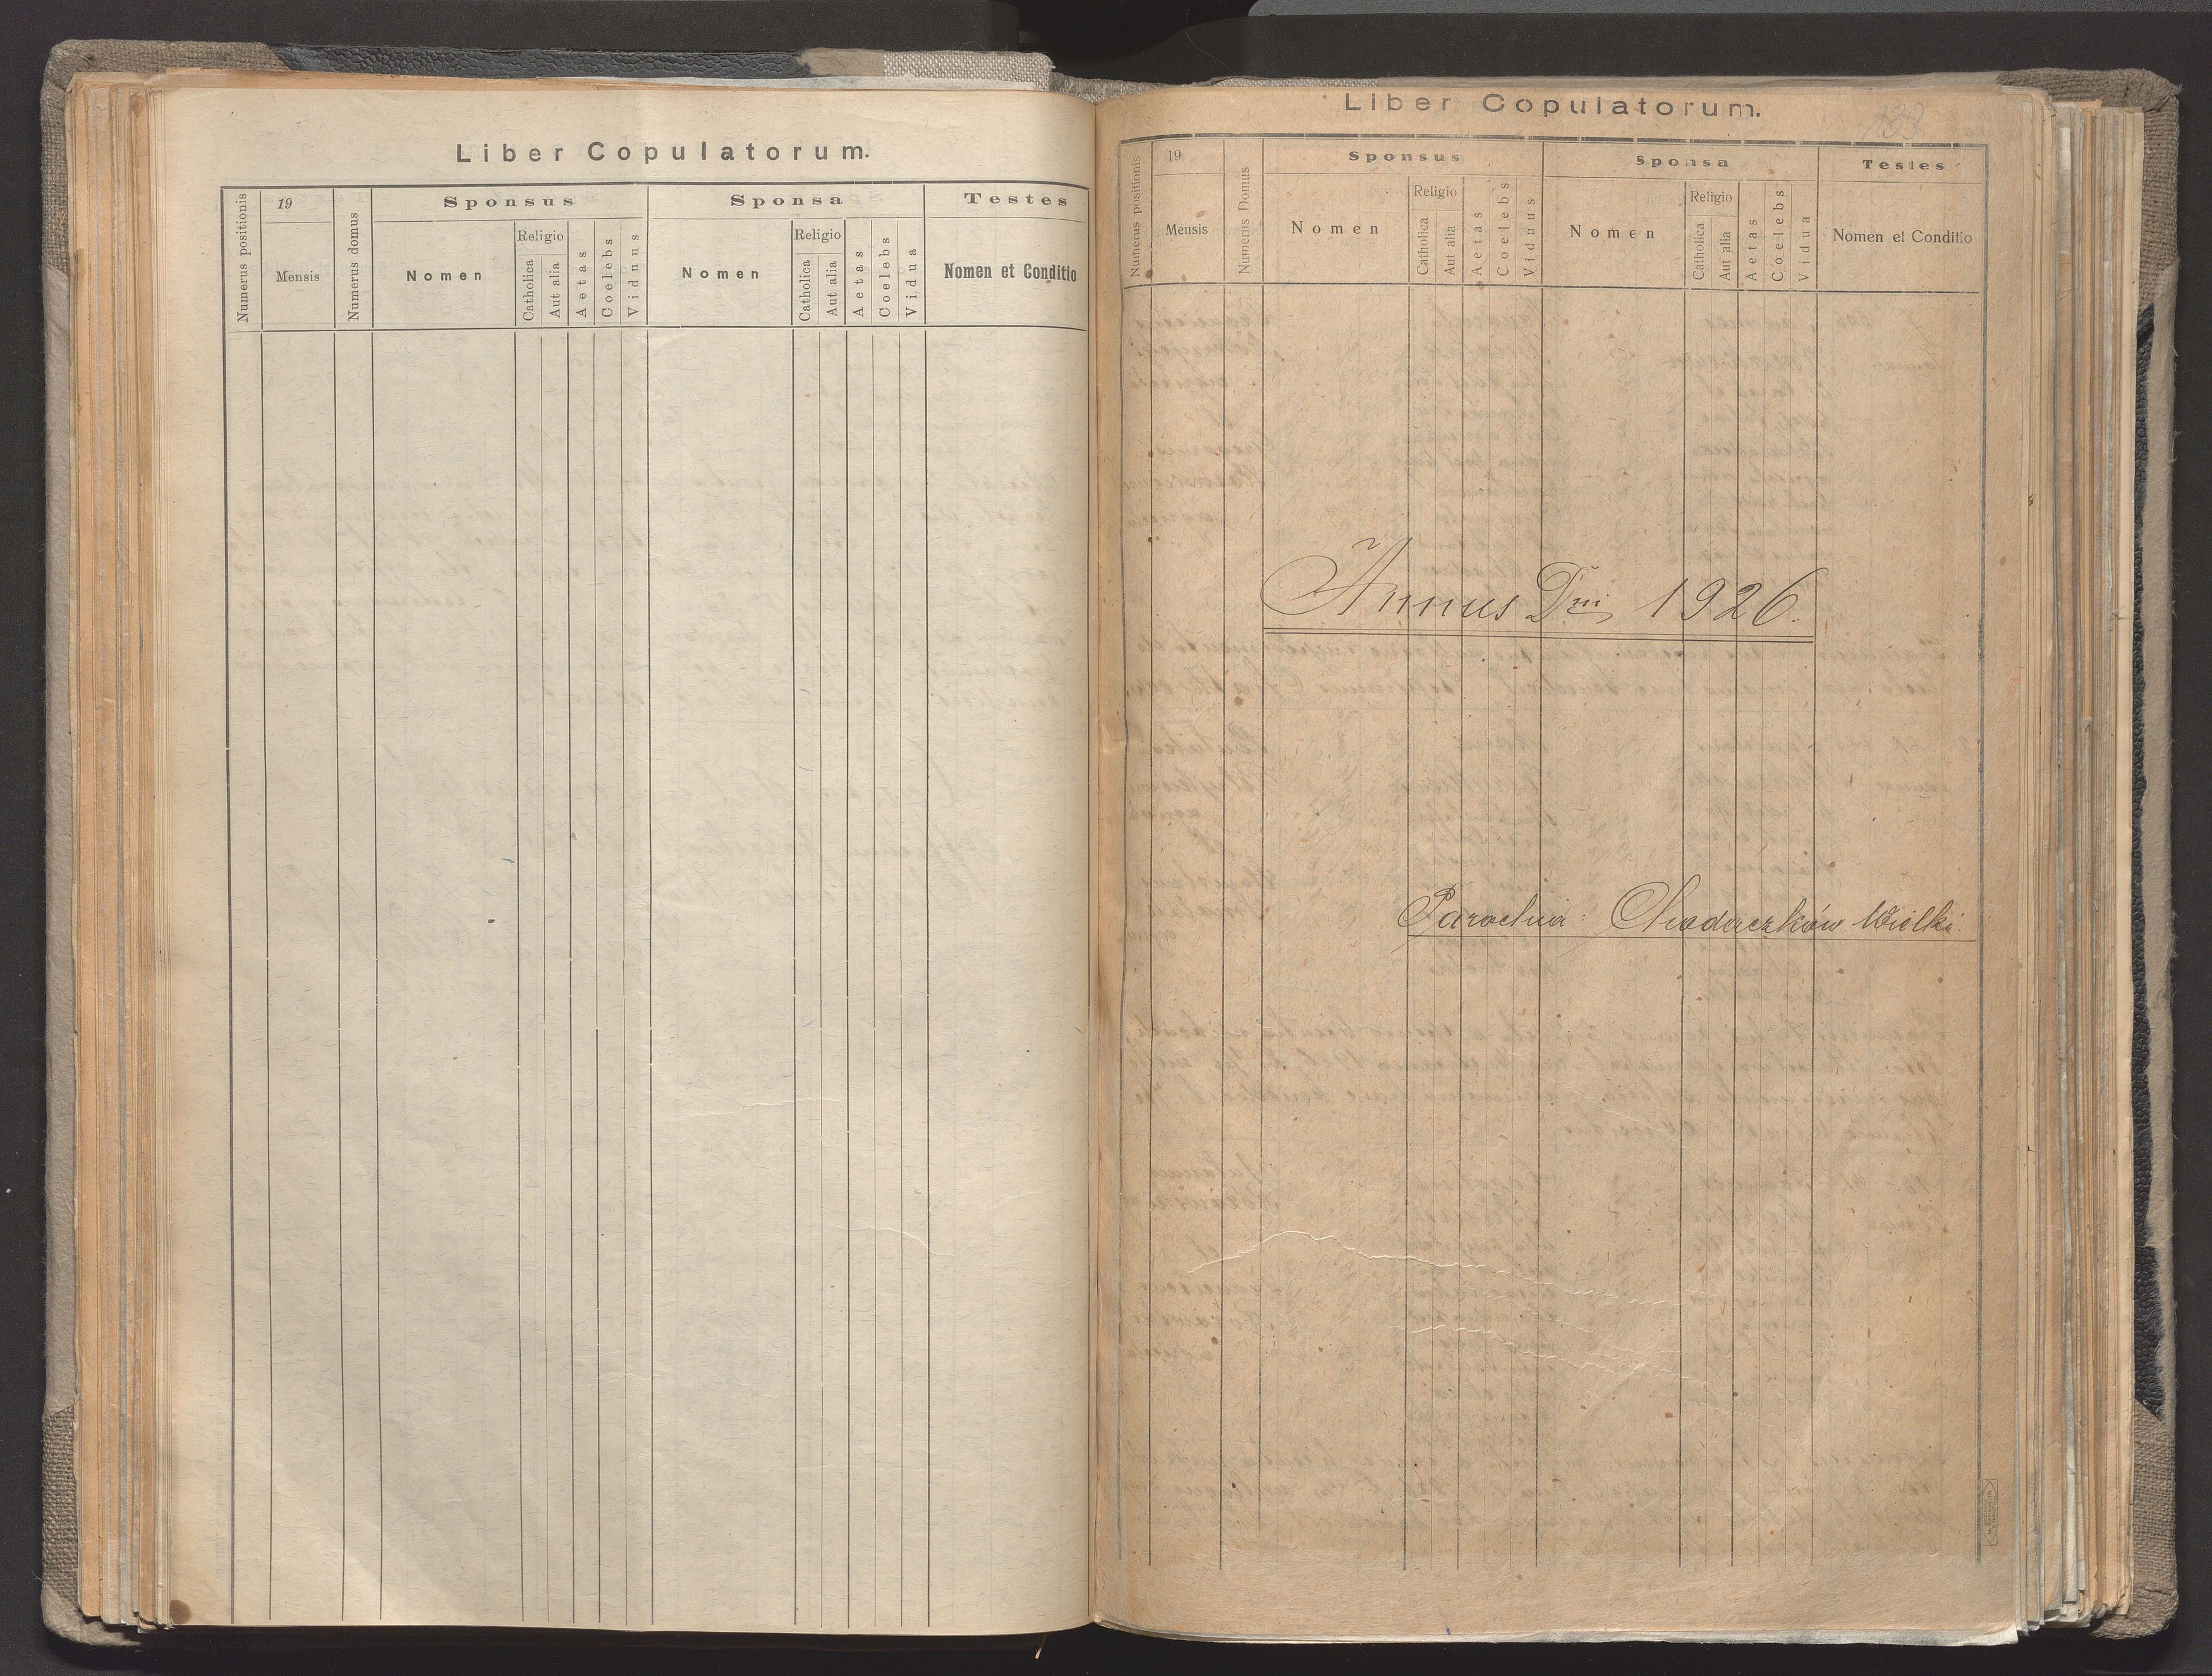 Liber Copulatorum.
Numerus positionis
19
Mensis
Numerus domus
Sponsus
Nomen
Religio
Catholica
Aut alia
Aetas
Coelebs
Viduus
Sponsa
Nomen
Religio
Catholica
Aut alia
Aetas
Coelebs
Vidua
Testes
Nomen et Conditio
Liber Copulatorum.
133
Numerus positionis
19
Mensis
Numerus Domus
Sponsus
Nomen
Religio
Catholica
Aut alia
Aetas
Coelebs
Viduus
Sponsa
Nomen
Religio
Catholica
Aut alia
Aetas
Coelebs
Vidua
Testes
Nomen et Conditio
Annus Dni 1926.
Parochia: Chodaczków Wielki.